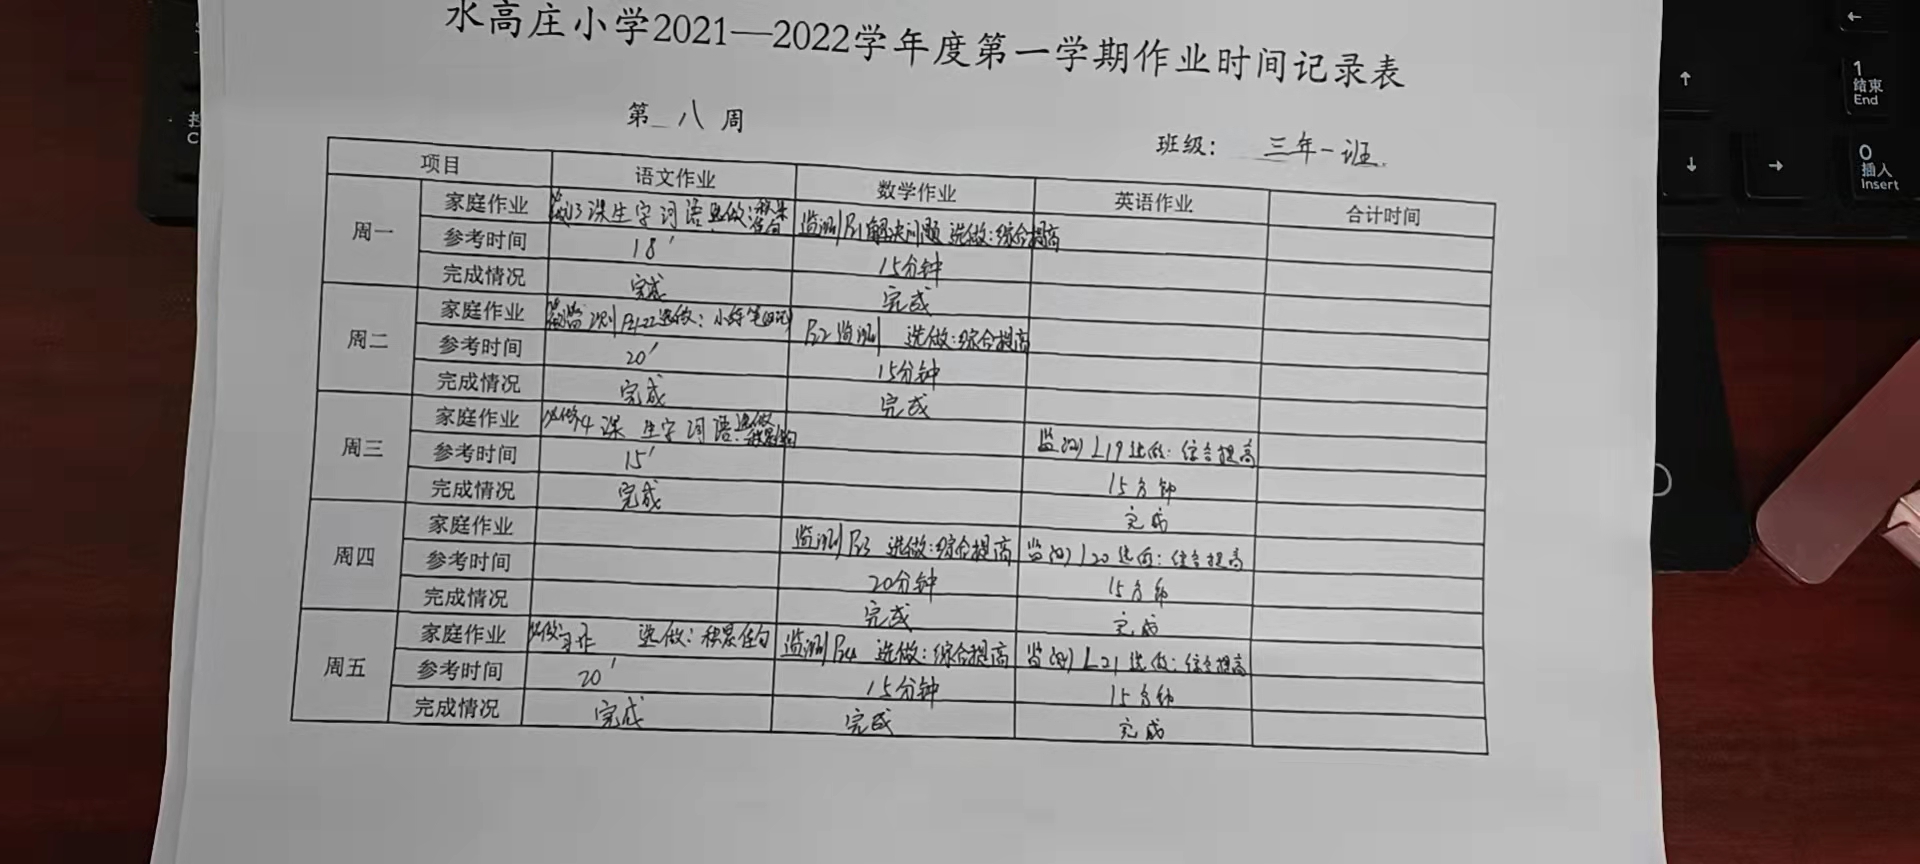 水高庄小学2021—2022学年度第一学期作业时间记录表
第 八 周
班级: 三年一班.
项目 语文作业 数学作业 英语作业 合计时间
周一
家庭作业 13课生字词语 选做:积累 监测P51解决问题 选做:综合提高
参考时间 18′ 15分钟
完成情况 完成 完成
周二
家庭作业 监测 P21-22 选做:小练笔 P52监测 选做:综合提高
参考时间 20′ 15分钟
完成情况 完成 完成
周三
家庭作业 必做14课 生字词语 选做 监测L19 选做:综合提高
参考时间 15′ 15分钟
完成情况 完成 完成
周四
家庭作业 监测P53 选做:综合提高 监测L20 选做:综合提高
参考时间 20分钟 15分钟
完成情况 完成 完成
周五
家庭作业 必做:习作 选做:积累佳句 监测P54 选做:综合提高 监测L21 选做:综合提高
参考时间 20′ 15分钟 15分钟
完成情况 完成 完成 完成
←
↑
1
结束
End
↓
→
0
插入
Insert